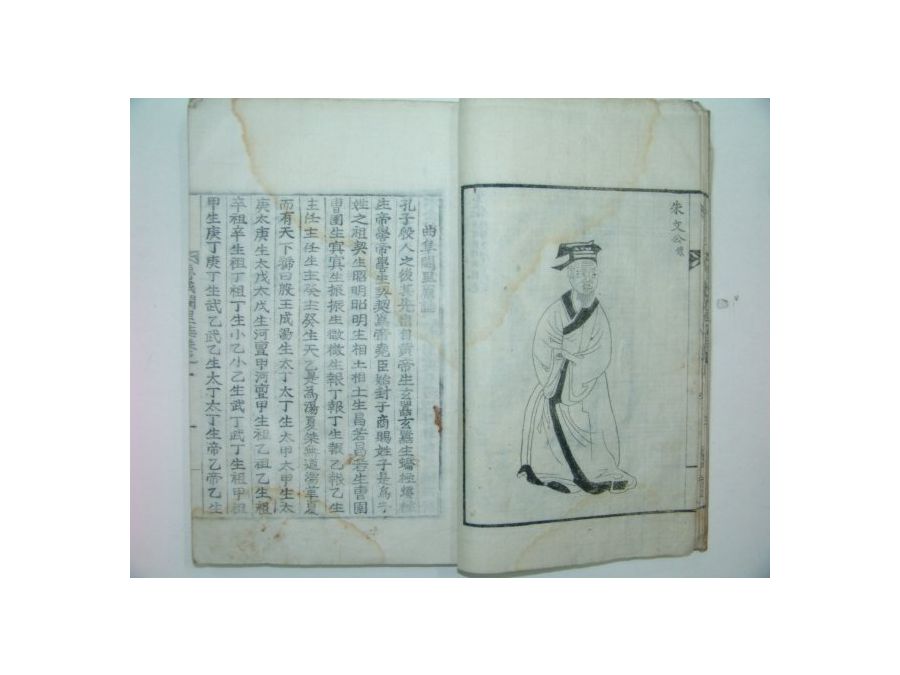 朱文公像
曲阜闕里譜
孔子殷人之後其先出自黃帝生玄囂玄囂生蟜極蟜極
生帝嚳帝嚳生契契爲帝堯臣始封于商賜姓子是爲子
姓之祖契生昭明昭明生相土相土生昌若昌若生曹圉
曹圉生冥冥生振振生微微生報丁報丁生報乙報乙生
主任主任生主癸主癸生天乙是爲湯夏桀無道湯革夏
而有天下號曰殷王成湯生太丁太丁生太甲太甲生太
庚太庚生太戊太戊生河亶甲河亶甲生祖乙祖乙生祖
辛祖辛生祖丁祖丁生小乙小乙生武丁武丁生祖甲祖
甲生庚丁庚丁生武乙武乙生太丁太丁生帝乙帝乙生